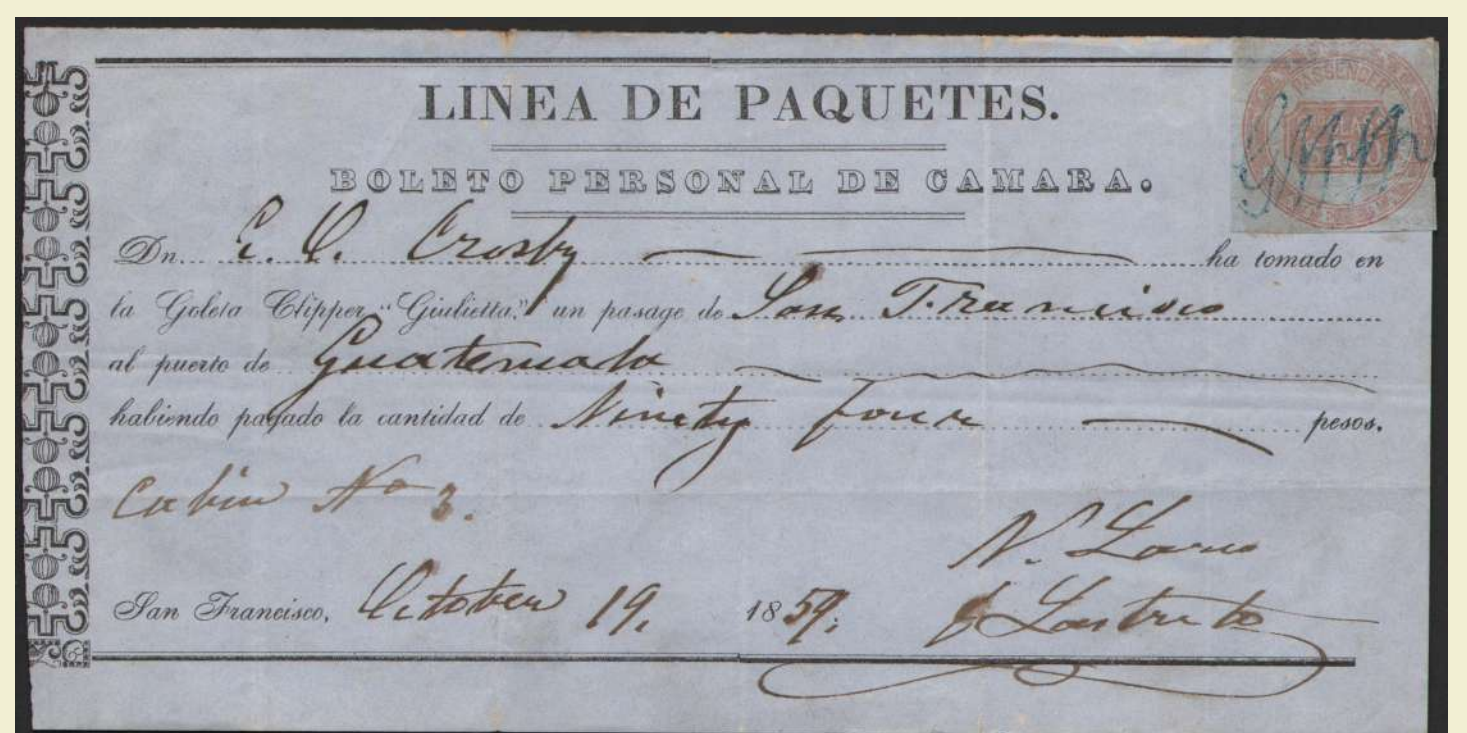 LINEA DE PAQUETES.
PASSENGER
BOLETO PERSONAL DE CAMARA.
Dn. E. O. Crosby ha tomado en
la Goleta Clipper "Giulietta," un pasage de San Francisco
al puerto de Guatemala
habiendo pagado la cantidad de Ninety four pesos.
Cabin No 3.
N. Larco
San Francisco, October 19, 1859.
Lastreto